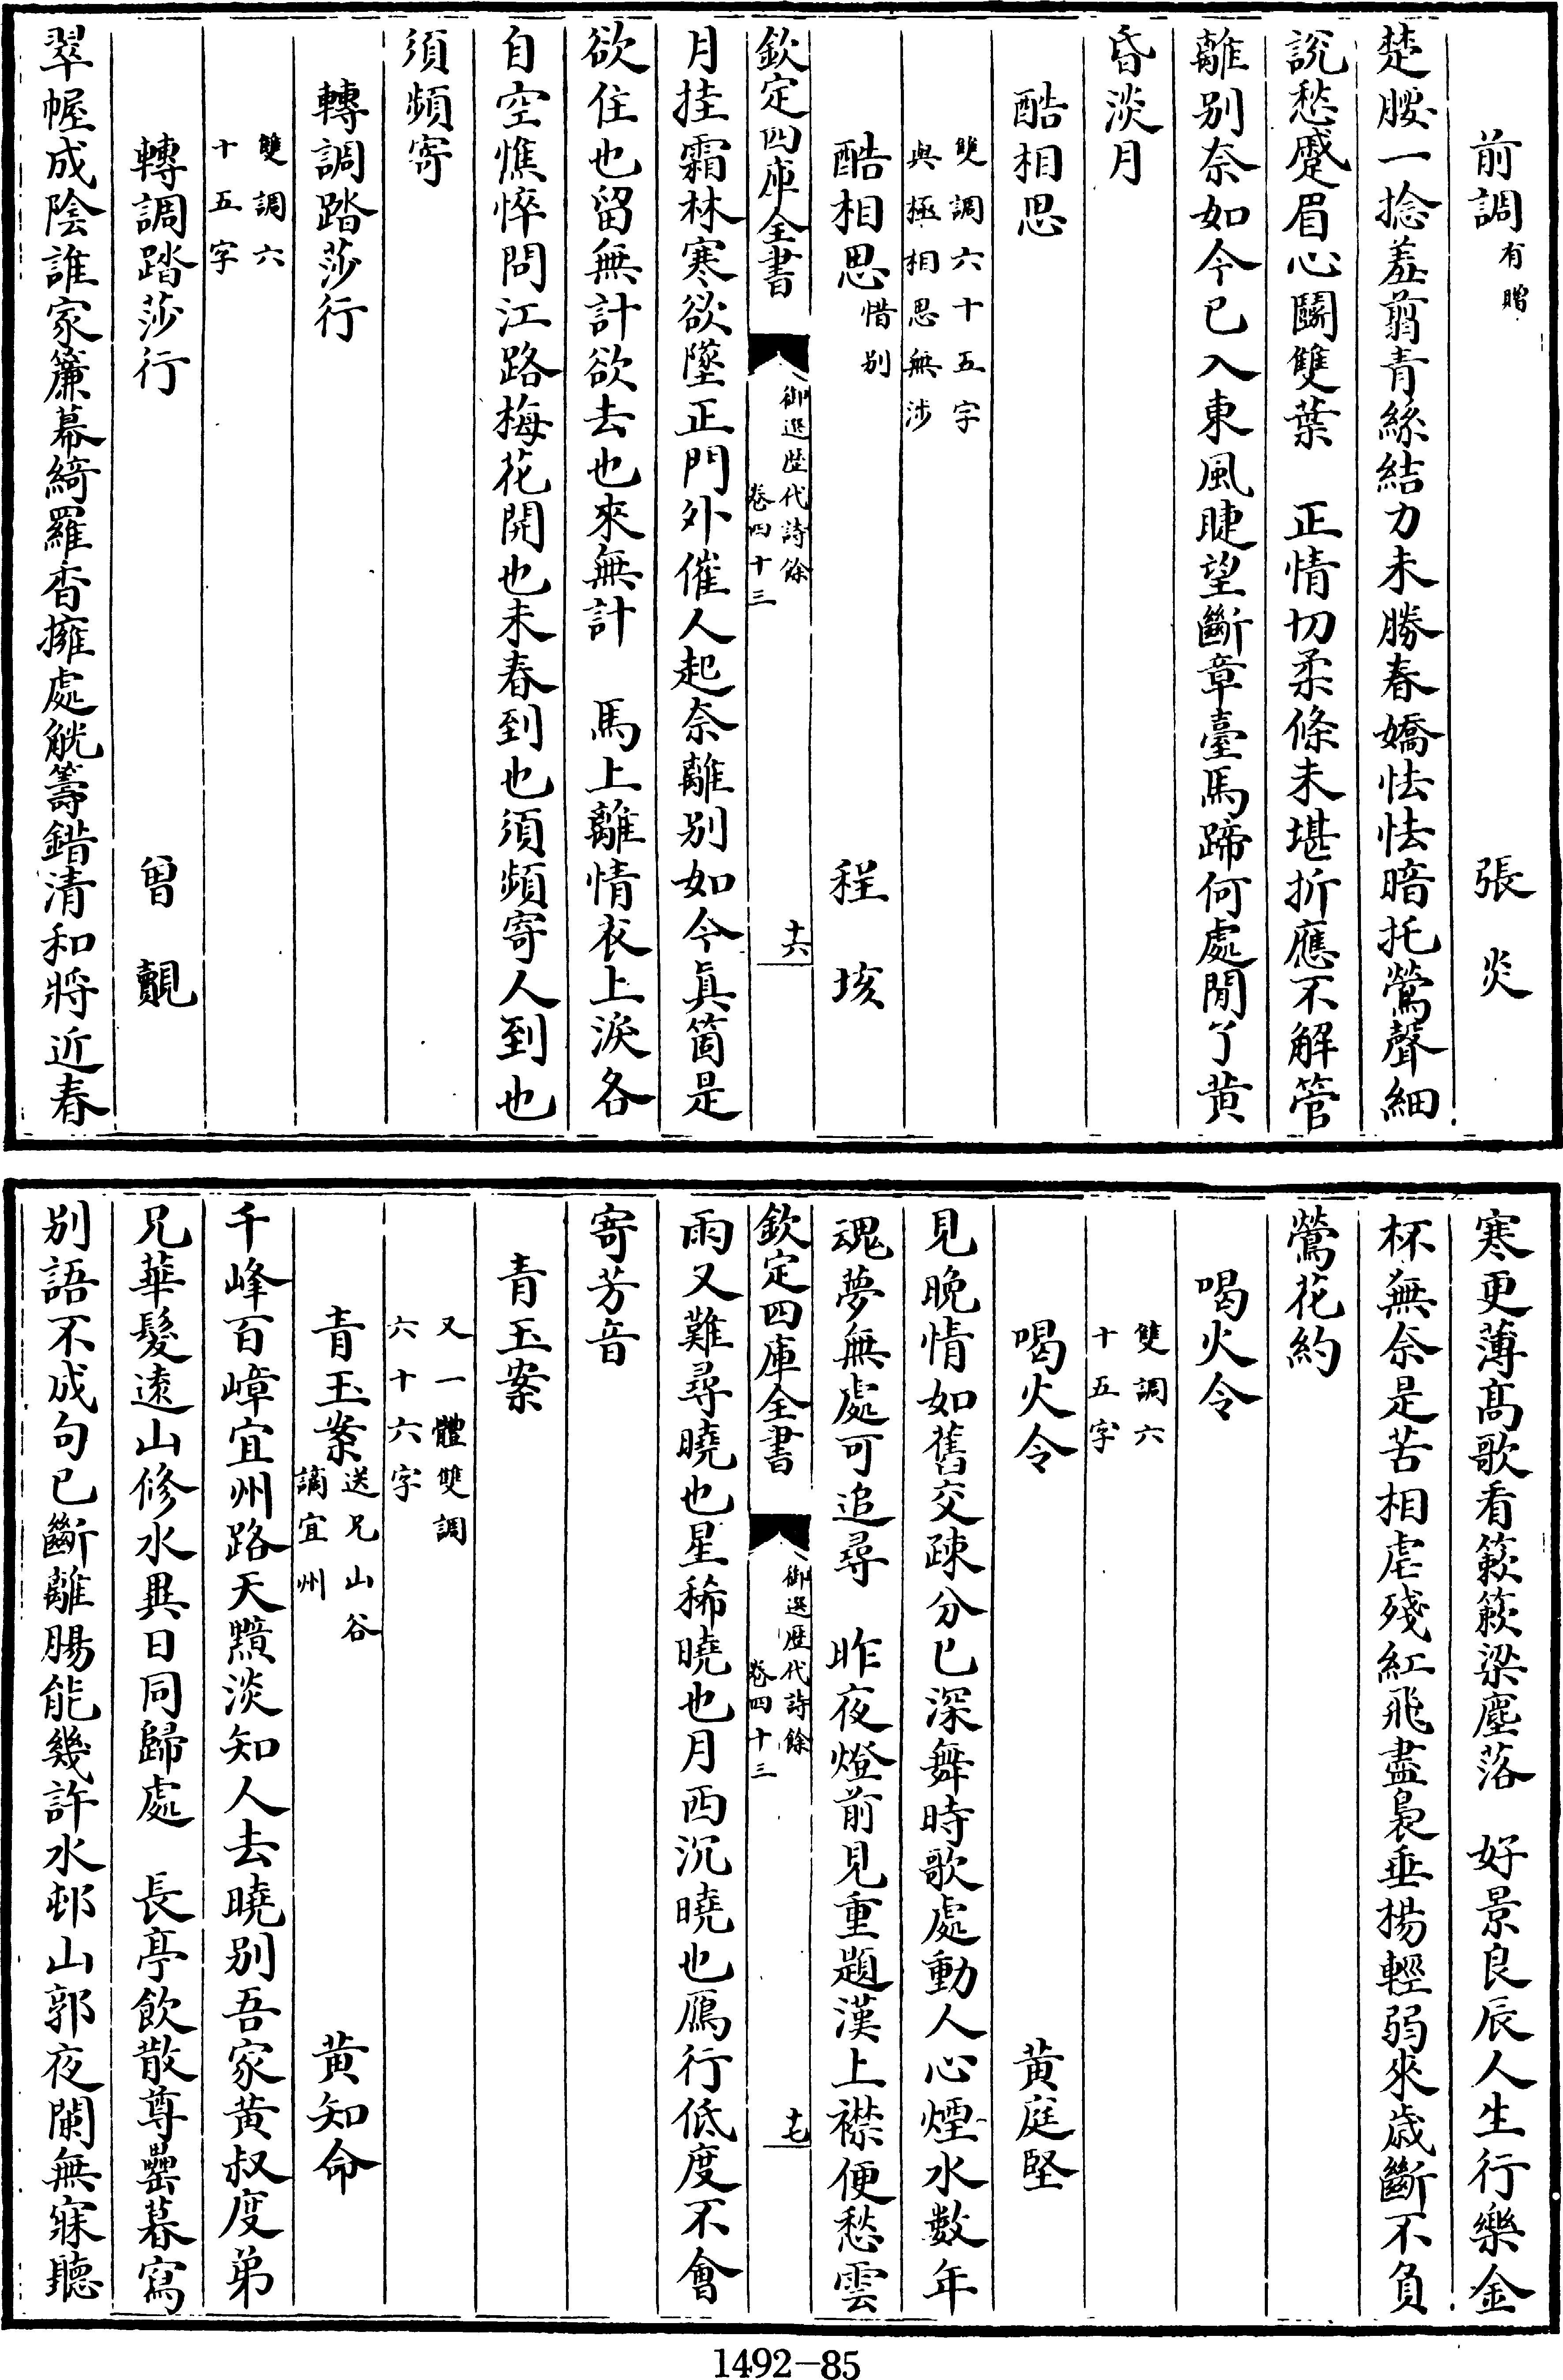 前調有贈　張炎
楚腰一捻羞翦青絲結力未勝春嬌怯怯暗托鶯聲細
說愁蹙眉心鬭雙葉　正情切柔條未堪折應不解管
離別奈如今已入東風睫望斷章臺馬蹄何處閒了黄
昏淡月
酷相思
雙調六十五字
與極相思無涉
酷相思惜別　程垓
欽定四庫全書　御選歷代詩餘卷四十三　十六
月挂霜林寒欲墜正門外催人起奈離別如今眞箇是
欲住也留無計欲去也來無計　馬上離情衣上淚各
自空憔悴問江路梅花開也未春到也須頻寄人到也
須頻寄
轉調踏莎行
雙調六
十五字
轉調踏莎行　曾覿
翠幄成陰誰家簾幕綺羅香擁處觥籌錯清和將近春
寒更薄高歌看簌簌梁塵落　好景良辰人生行樂金
杯無奈是苦相虐殘紅飛盡裊垂楊輕弱來歲斷不負
鶯花約
喝火令
雙調六
十五字
喝火令　黄庭堅
見晚情如舊交疎分已深舞時歌處動人心煙水數年
魂夢無處可追尋　昨夜燈前見重題漢上襟便愁雲
欽定四庫全書　御選歷代詩餘卷四十三　十七
雨又難尋曉也星稀曉也月西沉曉也鴈行低度不會
寄芳音
青玉案
又一體雙調
六十六字
青玉案送兄山谷謫宜州　黄知命
千峰百嶂宜州路天黯淡知人去曉別吾家黄叔度弟
兄華髮遠山修水異日同歸處　長亭飲散尊罍暮寫
別語不成句已斷離腸能幾許水邨山郭夜闌無寐聽
1492-85